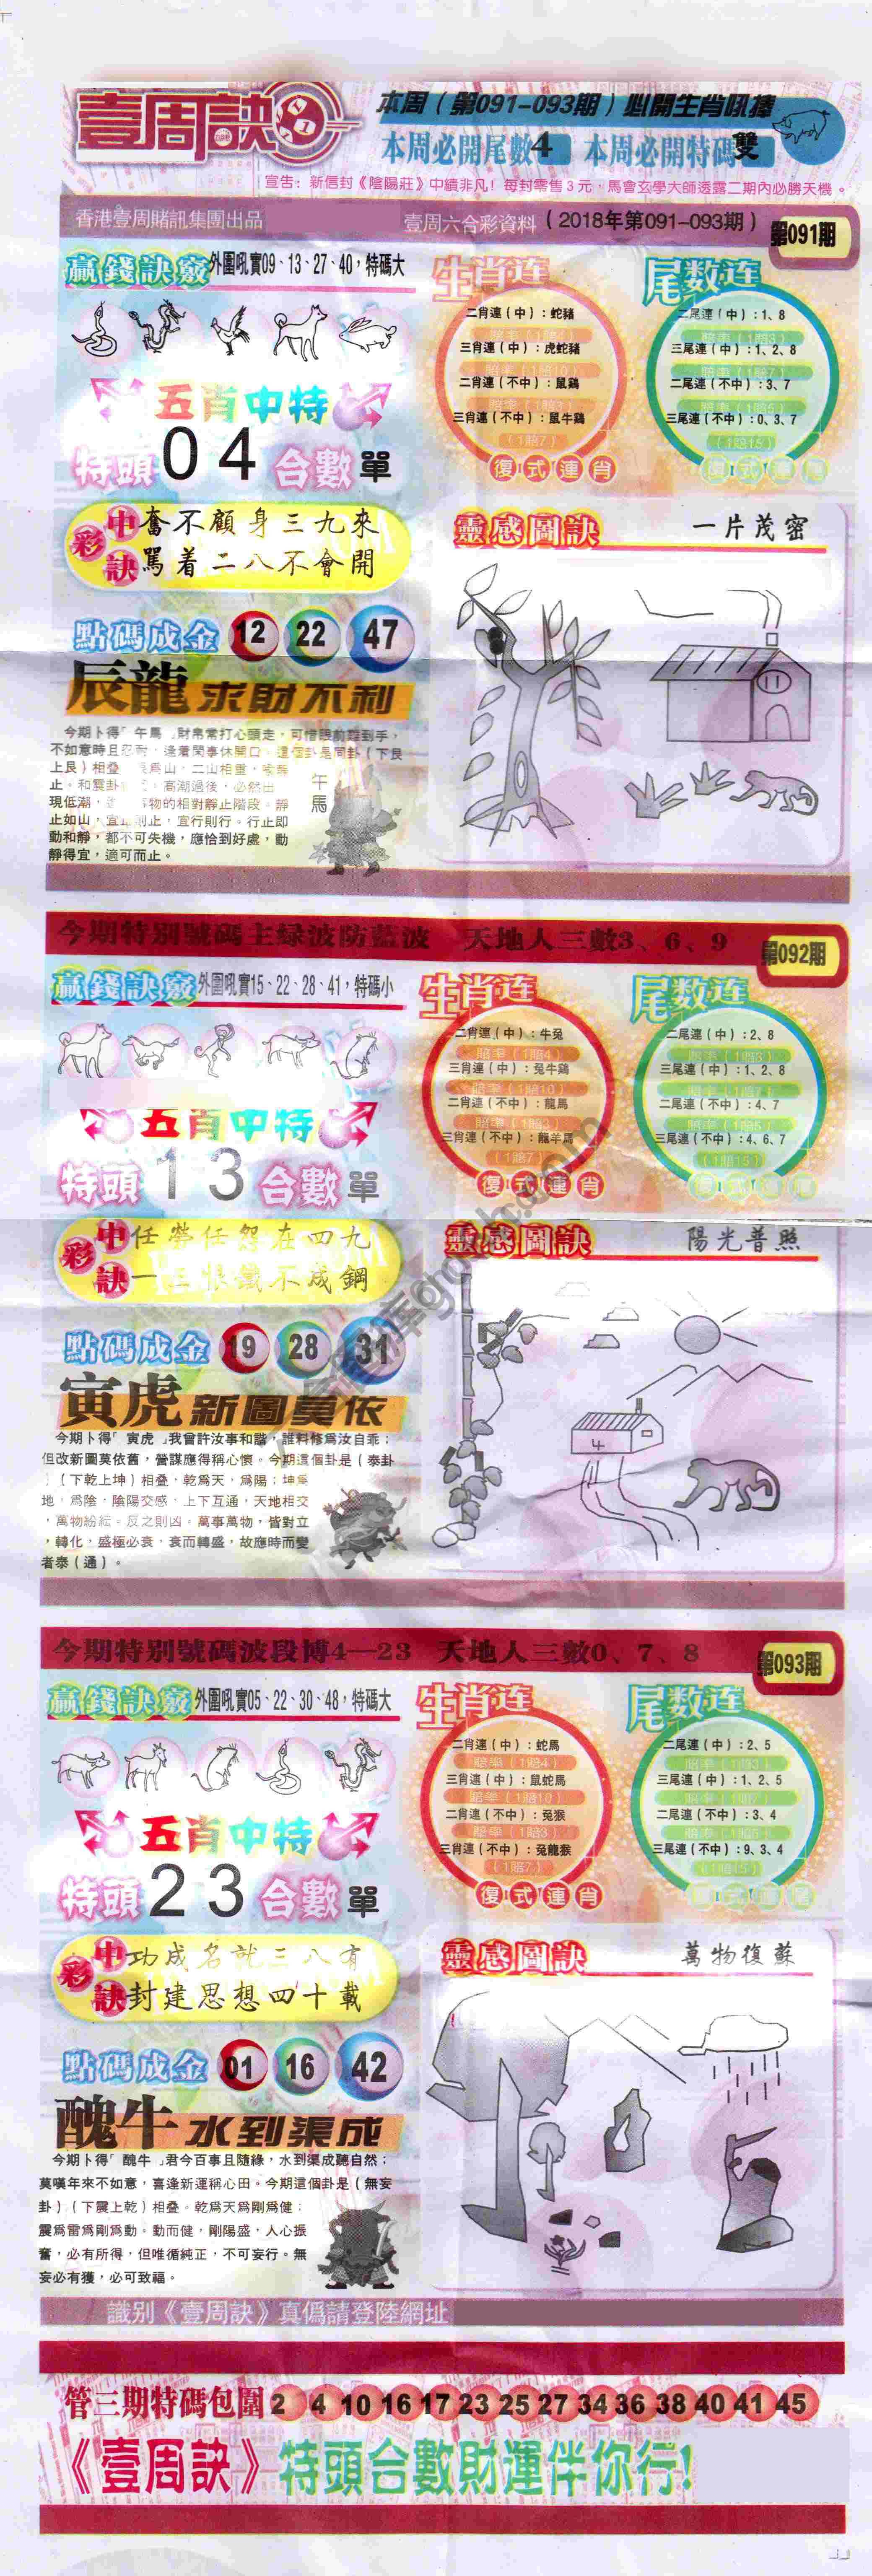 壹周訣
本周（第091-093期）必開生肖吼豬
本周必開尾數4 本周必開特碼雙
宣告：新信封《陰陽莊》中續非凡！每封零售3元，馬會玄學大師透露二期內必勝天機。
香港壹周賭訊集團出品
壹周六合彩資料（2018年第091-093期）
第091期
贏錢訣竅 外圍吼實09、13、27、40，特碼大
五肖中特
特頭 0 4 合數 單
生肖连
二肖連（中）：蛇豬
賠率（1賠4）
三肖連（中）：虎蛇豬
賠率（1賠10）
二肖連（不中）：鼠鷄
賠率（1賠3）
三肖連（不中）：鼠牛鷄
（1賠7）
復式連肖
尾数连
二尾連（中）：1、8
賠率（1賠3）
三尾連（中）：1、2、8
賠率（1賠7）
二尾連（不中）：3、7
賠率（1賠5）
三尾連（不中）：0、3、7
（1賠15）
復式連尾
彩中訣
奮不顧身三九來
罵着二八不會開
點碼成金 12 22 47
辰龍求財不利
今期卜得「午馬」財帛常打心頭走，可惜眼前難到手，
不如意時且忍耐，逢着閑事休開口。這個卦是同卦（下艮
上艮）相叠
止。和震卦
高潮過後，必然出
現低潮，
物的相對靜止階段。靜
止如山，宜止則止，宜行則行。行止即
動和靜，都不可失機，應恰到好處，動
靜得宜，適可而止。
午馬
靈感圖訣 一片茂密
今期特别號碼主绿波防藍波 天地人三數3、6、9
第092期
贏錢訣竅 外圍吼實15、22、28、41，特碼小
五肖中特
特頭 1 3 合數 單
生肖连
二肖連（中）：牛兔
賠率（1賠4）
三肖連（中）：兔牛鷄
賠率（1賠10）
二肖連（不中）：龍馬
賠率（1賠3）
三肖連（不中）：龍羊馬
（1賠7）
復式連肖
尾数连
二尾連（中）：2、8
賠率（1賠3）
三尾連（中）：1、2、8
賠率（1賠7）
二尾連（不中）：4、7
賠率（1賠5）
三尾連（不中）：4、6、7
（1賠15）
復式連尾
彩中訣
任勞任怨在四九
一三恨鐵不成鋼
點碼成金 19 28 31
寅虎新圖莫依
今期卜得「寅虎」我曾許汝事和諧，誰料修爲汝自乖；
但改新圖莫依舊，營謀應得稱心懷。今期這個卦是（泰卦
）（下乾上坤）相叠，乾爲天，爲陽；坤爲
地，爲陰，陰陽交感，上下互通，天地相交
，萬物紛紜。反之則凶。萬事萬物，皆對立
，轉化，盛極必衰，衰而轉盛，故應時而變
者泰（通）。
靈感圖訣 陽光普照
4
今期特别號碼波段博4—23 天地人三數0、7、8
第093期
贏錢訣竅 外圍吼實05、22、30、48，特碼大
五肖中特
特頭 2 3 合數 單
生肖连
二肖連（中）：蛇馬
賠率（1賠4）
三肖連（中）：鼠蛇馬
賠率（1賠10）
二肖連（不中）：兔猴
賠率（1賠3）
三肖連（不中）：兔龍猴
（1賠7）
復式連肖
尾数连
二尾連（中）：2、5
賠率（1賠3）
三尾連（中）：1、2、5
賠率（1賠7）
二尾連（不中）：3、4
賠率（1賠5）
三尾連（不中）：9、3、4
（1賠15）
復式連尾
彩中訣
功成名就三八有
封建思想四十載
點碼成金 01 16 42
醜牛水到渠成
今期卜得「醜牛」君今百事且隨緣，水到渠成聽自然；
莫嘆年來不如意，喜逢新運稱心田。今期這個卦是（無妄
卦）（下震上乾）相叠。乾爲天爲剛爲健；
震爲雷爲剛爲動。動而健，剛陽盛，人心振
奮，必有所得，但唯循純正，不可妄行。無
妄必有獲，必可致福。
靈感圖訣 萬物復蘇
識别《壹周訣》真僞請登陸網址
管三期特碼包圍 2 4 10 16 17 23 25 27 34 36 38 40 41 45
《壹周訣》特頭合數財運伴你行!